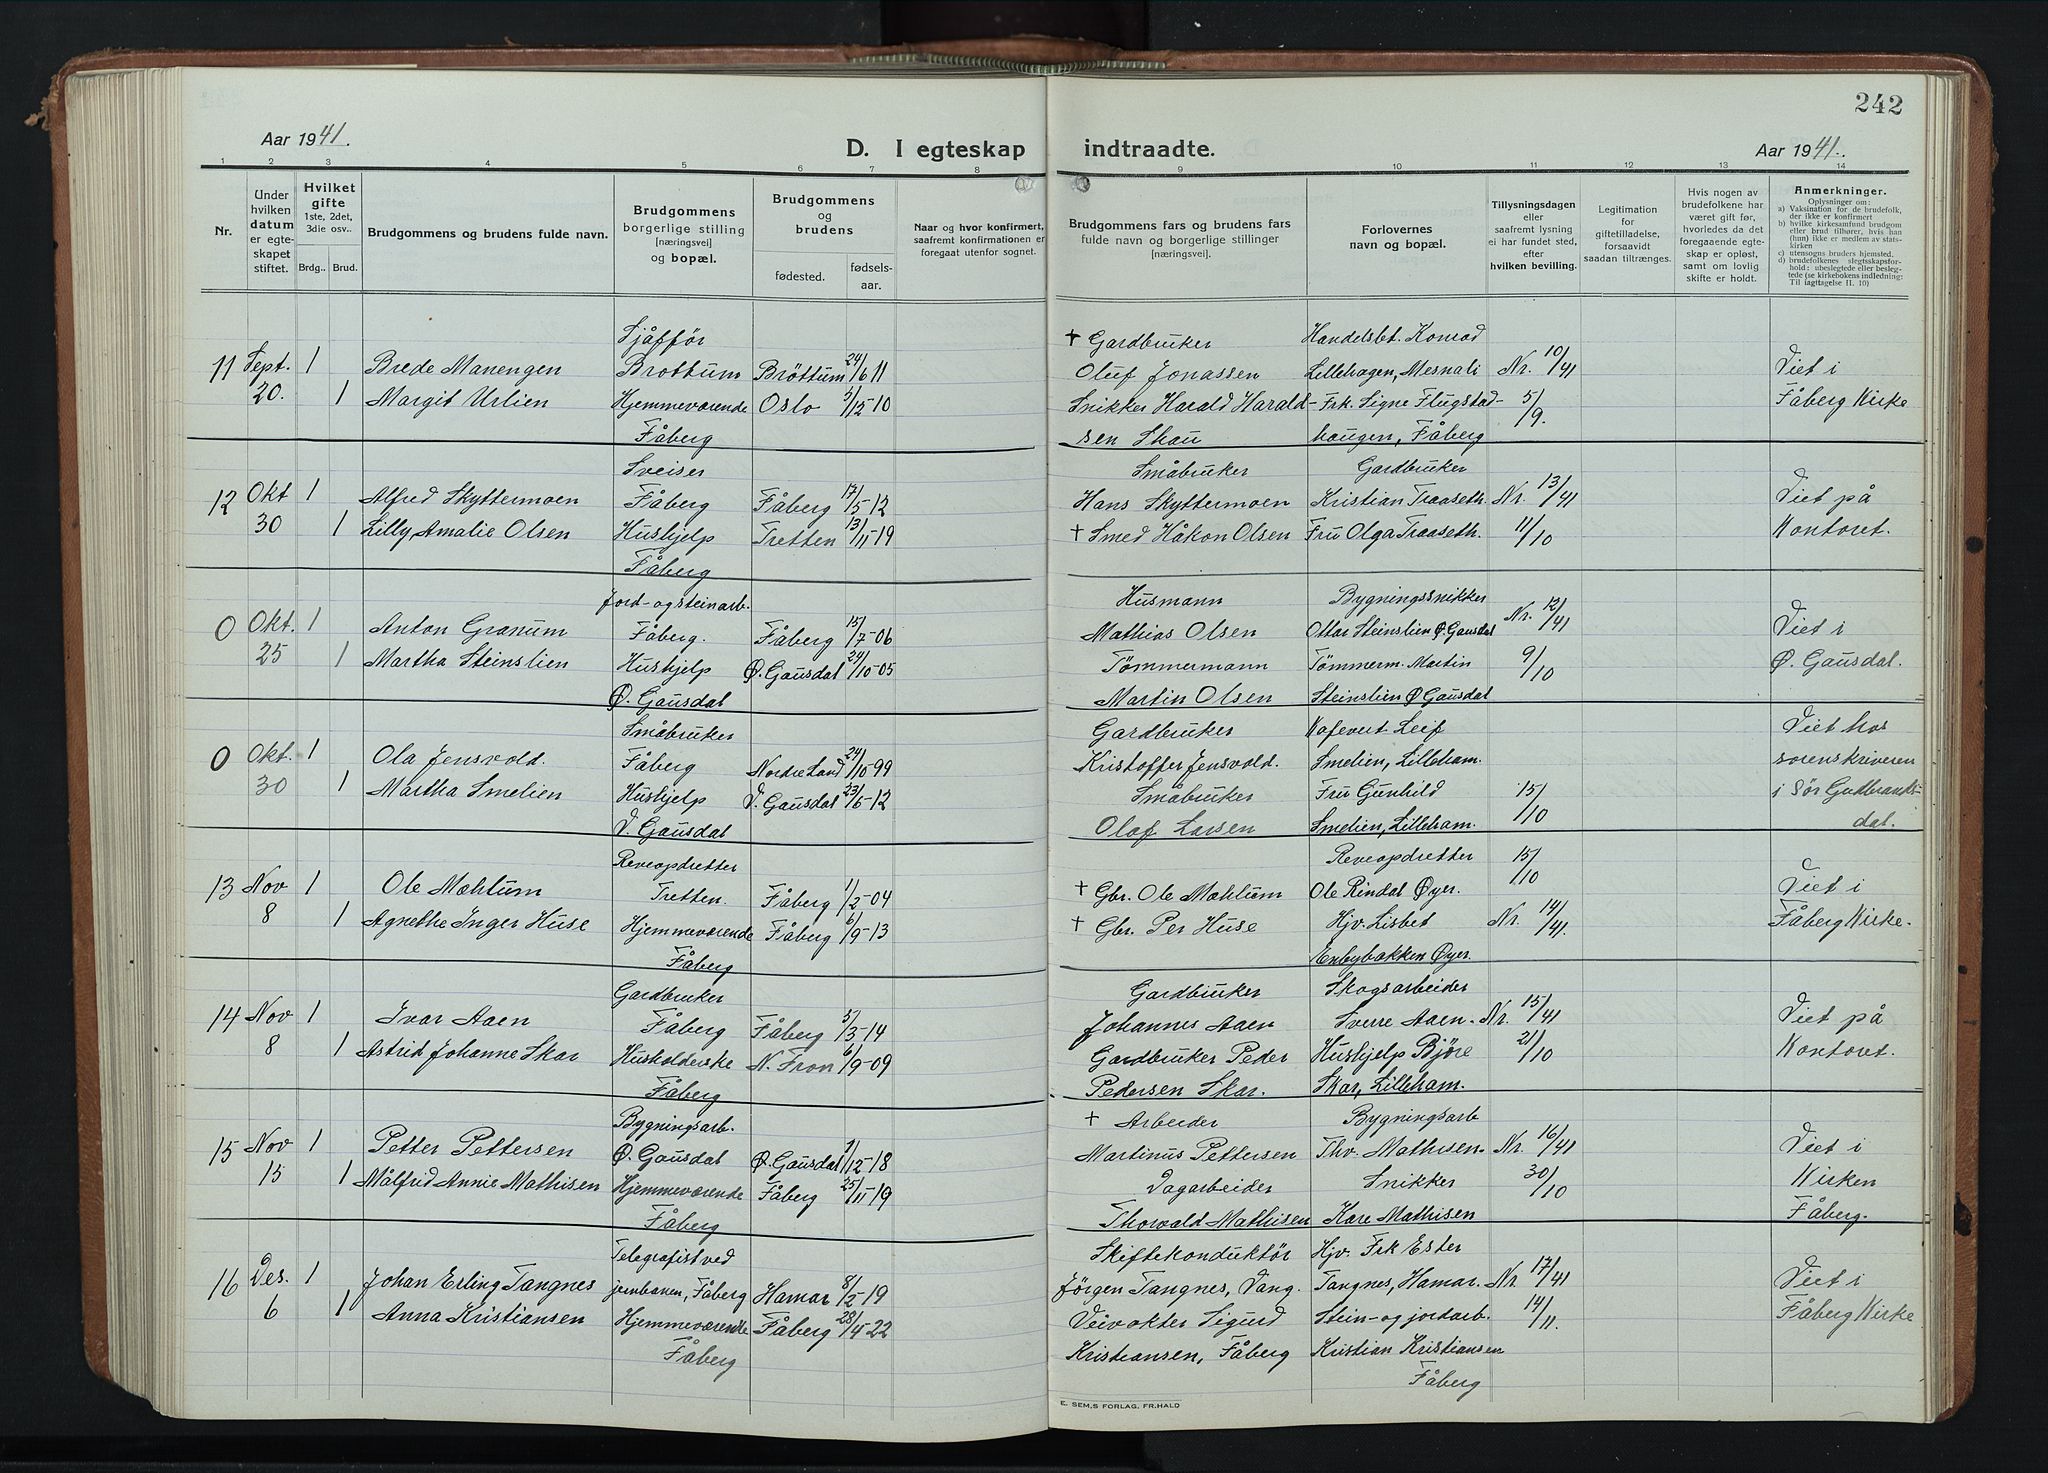 242
Aar 1941.
D. I egteskap indtraadte.
Aar 1941.
1 2 3 4 5 6 7 8 9 10 11 12 13 14
Nr.
Under hvilken datum er egteskapet stiftet.
Hvilket gifte 1ste, 2det, 3die osv.. Brdg.. Brud.
Brudgommens og brudens fulde navn.
Brudgommens borgerlige stilling [næringsvei] og bopæl.
Brudgommens og brudens
fødested. fødsels-aar.
Naar og hvor konfirmert, saafremt konfirmationen er foregaat utenfor sognet.
Brudgommens fars og brudens fars fulde navn og borgerlige stillinger [næringsvei].
Forlovernes navn og bopæl.
Tillysningsdagen eller saafremt lysning ei har fundet sted, efter hvilken bevilling.
Legitimation for giftetilladelse, forsaavidt saadan tiltrænges.
Hvis nogen av brudefolkene har været gift før, hvorledes da det foregaaende egteskap er opløst, samt om lovlig skifte er holdt.
Anmerkninger.
Oplysninger om:
a) Vaksination for de brudefolk, der ikke er konfirmert
b) hvilke kirkesamfund brudgom eller brud tilhører, hvis han (hun) ikke er medlem av statskirken
c) utensogns bruders hjemsted.
d) brudefolkenes slegtsskapsforhold: ubeslegtede eller beslegtede (se kirkebokens indledning: Til iagttagelse II. 10)
Sjåffør † Gardbruker Handelsbet. Konrad
11 Sept. 1 Brede Manengen Brøttum Brøttum 24/6 11 Oluf Jonassen Lillehagen, Mesnali Nr. 10/41 Viet i
20. 1 Margit Urlien Hjemmeværende Oslo 5/12-10 Snikker Harald Harald- Frk. Signe Flugstad- 5/9. Fåberg Kirke
Fåberg sen Skau haugen, Fåberg
Sveiser Småbruker Gardbruker
12 Okt 1 Alfred Skyttermoen Fåberg Fåberg 17/5-12 Hans Skyttermoen Kristian Traaseth. Nr. 13/41 Viet på
30 1 Lilly Amalie Olsen Hushjelp Tretten 13/11-19 † Smed Håkon Olsen Fru Olga Traaseth. 11/10 Kontoret.
Fåberg
Jord- og steinarb. Husmann Bygningssnikker
0 Okt. 1 Anton Granum Fåberg. Fåberg 15/7-06 Mathias Olsen Ottar Steinslien Ø. Gausdal Nr. 12/41 Viet i
25 1 Martha Steinslien Hushjelp Ø. Gausdal 24/10-05 Tømmermann Tømmerm. Martin 9/10 Ø. Gausdal.
Ø. Gausdal Martin Olsen Steinslien Ø Gausdal
Småbruker Gardbruker Kafevert Leif Viet hos
0 Okt. 1 Ola Jensvold. Fåberg Nordre Land 24/10-99 Kristoffer Jensvold. Smelien, Lilleham. sorenskriveren
30 1 Martha Smelien Hushjelp V. Gausdal 23/5-12 Småbruker Fru Gunhild 15/10 i Sør Gudbrands-
V. Gausdal Olaf Larsen Smelien, Lilleham. dal.
Reveopdretter Reveopdretter 15/10
13 Nov 1 Ole Mæhlum Tretten. Fåberg 1/2-04 † Gbr. Ole Mæhlum Ole Rindal Øyer. Viet i
8 1 Agnethe Inger Huse Hjemmeværende Fåberg 6/9-13 † Gbr. Per Huse Hjv. Lisbet Nr. 14/41. Fåberg Kirke.
Fåberg Enbybakken Øyer.
Gardbruker Gardbruker Skogsarbeider
14 Nov 1 Ivar Aaen Fåberg Fåberg 5/3-14 Johannes Aaen Sverre Aaen. Nr. 15/41 Viet på
8 1 Astrid Johanne Skar Husholderske N. Fron 6/9-09 Gardbruker Peder Hushjelp Bjøre 21/10 Kontoret.
Fåberg Pedersen Skar. Skar, Lilleham.
Bygningsarb. † Arbeider Bygningsarb
15 Nov 1 Petter Pettersen Ø. Gausdal Ø. Gausdal 1/12-18 Martinus Pettersen Thv. Mathisen. Nr. 16/41 Viet i
15 1 Målfrid Annie Mathisen Hjemmeværende Fåberg 25/11-19 Dagarbeider Snikker 30/10 Kirken
Fåberg Thorvald Mathisen Kåre Mathisen Fåberg.
Telegrafist ved Skiftekonduktør Hjv. Frk Ester
16 Des. 1 Johan Erling Tangnes jernbanen, Fåberg Hamar 8/2-19 Jørgen Tangnes, Vang. Tangnes, Hamar. Nr 17/41 Viet i
6 1 Anna Kristiansen Hjemmeværende Fåberg 28/4-22 Veivokter Sigurd Stein- og jordarb. 14/11. Fåberg Kirke
Fåberg Kristiansen, Fåberg Kristian Kristiansen
Fåberg
E. SEM,S FORLAG, FR.HALD